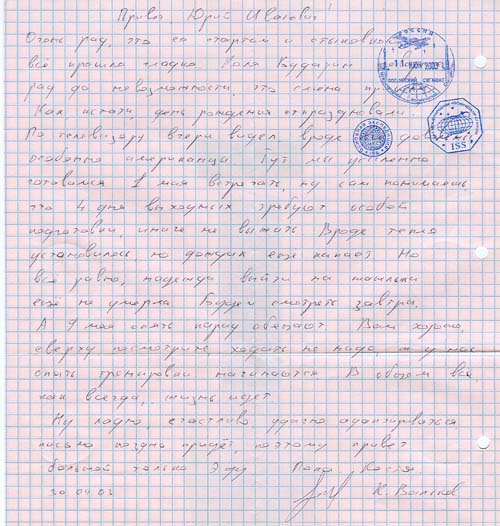 Привет, Юрий Иванович!
Очень рад, что со стартом и стыковкой
всё прошло гладко. Коля Бударин
рад до невозможности, что смена
Как кстати, день рождения отпраздновали
По телевизору вчера видел вроде
особенно американцы Тут мы усиленно
готовимся 1 мая встречать, ну сам понимаешь,
что 4 дня выходных требуют особой
подготовки, иначе не выжить Вроде тепло
установилось но дождик ещё капает Но
всё равно, надежда выйти на шашлыки
ещё не умерла. Будем смотреть завтра.
А 9 мая опять парад обещают Вам хорошо,
сверху посмотрите, ходить не надо, а у нас
опять тренировки начинаются В общем всё,
как всегда, жизнь идёт
Ну ладно, счастливо, удачно адаптироваться
письмо поздно придёт, поэтому привет
большой только Эду Пока Костя.
30 04 03 К. Вальков
РОССИЯ
ISS